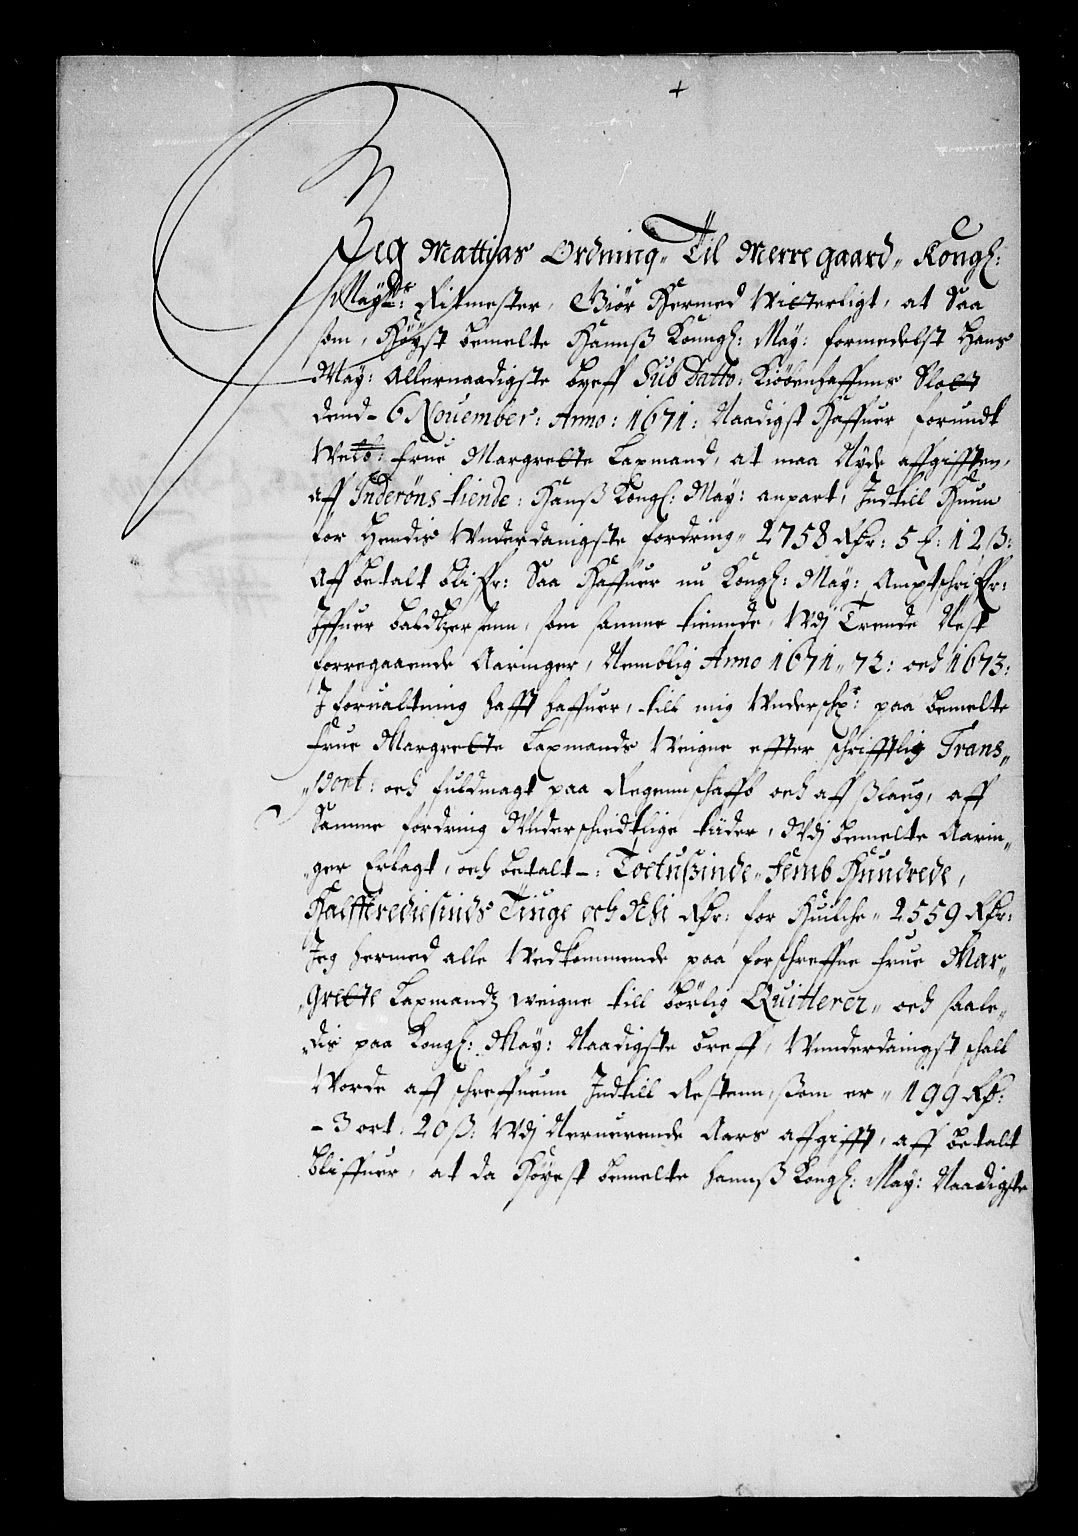 Jeg Mattias Ordning„ Til Merregaard„ Kongl:
May:tts Ritmester, Giør Hermed Witterligt, at Saa
som, Høyst bemelte Hannß Konngl: May: formedelst Hans
May: Allernaadigste breff Sub Datto: Kiöbenhaffuns Slott
dend- 6 Nouember: Anno: 1671: Naadigst Haffuer forundt
Welb: frue Margrette Lapmand, at maa Nyde affgifften,
aff Inderöns tiende: Hanß Kongl: May: anpart, Indtill Hunn
for Hendis Wnderdanigste fordring„ 2758 Rdr: 5 : 12 ß:
Aff betalt bliffr: Saa Haffuer nu Kongl: May: Amptschriffr:
Iffuer baldtzersenn, som samme tiennde, Wdj Trende Nest
forregaaende Aaringer, Nemblig Anno 1671„ 72: och 1673:
I forualtning hafft haffuer, till mig Wnderschr: paa bemelte
frue Margrette Lapmands Weigne effter schrifftlig Trans„
„Port: och fuldmagt paa Regennschaff och aff ßlaug, aff
Samme fordring Wnderschiedtlige tiider, Wdj bemelte Aarin„
„ger Erlagt, och betalt-: Toetußinde„ femb Hundrede,
Halfftrediesinds Tiuge och Nehi Rdr: for Huilche„ 2559 Rdr:
Jeg hermed alle Wedkommende paa forschreffne frue Mar„
„Grette Lapmandtz weigne till börlig Quitterer„ och saale„
„dis paa Kongl: May: Naadigste breff, Wnnderdanigst schall
Worde aff schreffuenn Indtill Restenn, ßom er„ 199 Rdr:
- 3 ort: 20 ß: Wdj Neruerende Aars affgifft, aff betalt
bliffuer, at da Höyest bemelte hannß Kongl: May: Naadigste